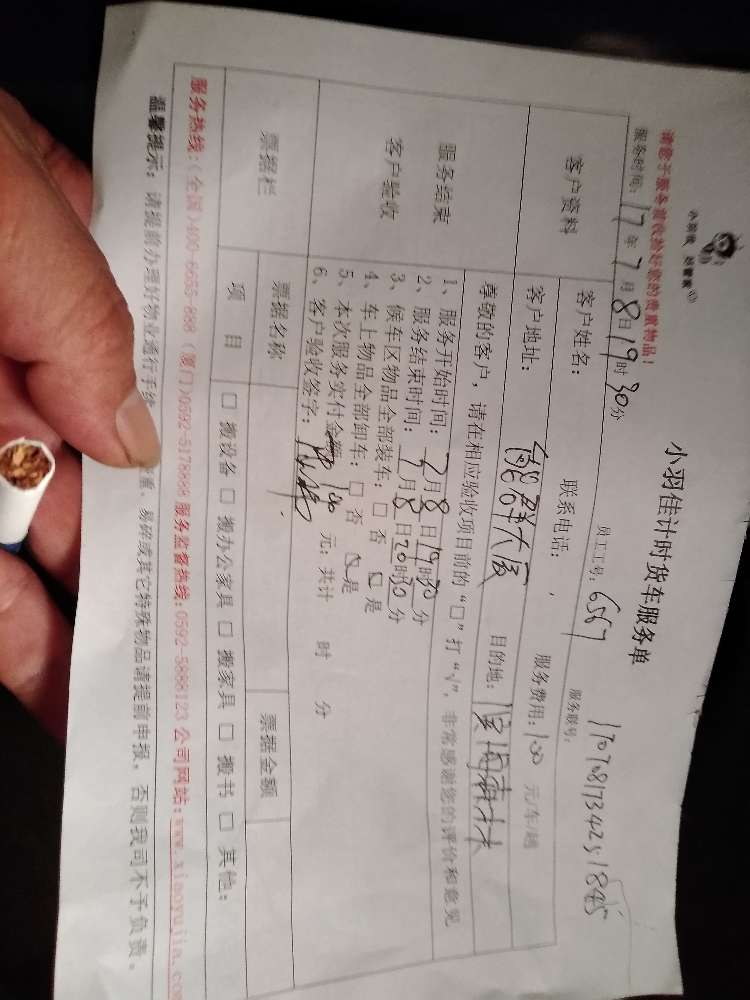 小羽佳 好管家
请您于服务前收拾好您的贵重物品!
小羽佳计时货车服务单
服务时间: 17年7月8日19时30分 员工工号: 6567 服务账号:
客户资料
客户姓名: 联系电话: 服务费用: 100 元/车/趟
客户地址: 大厦 目的地:
服务结束
客户验收
尊敬的客户,请在相应验收项目前的“□”打“√”,非常感谢您的评价和意见
1、服务开始时间: 7月8日19时30分
2、服务结束时间: 7月8日20时30分
3、候车区物品全部装车: □ 否 □ 是
4、车上物品全部卸车: □ 否 □ 是
5、本次服务实付金额 100 元; 共计 时 分
6、客户验收签字:
票据栏
票据名称 票据金额
项 目 □ 搬设备 □ 搬办公家具 □ 搬家具 □ 搬书 □ 其他:
服务热线:(全国)400-6655-888 (厦门)0592-5178888 服务监督热线:0592-5888123 公司网站:www.xiaoyujia.co
温馨提示: 请提前办理好物业通行手续 重、易碎或其它特殊物品请提前申报,否则我司不予负责。